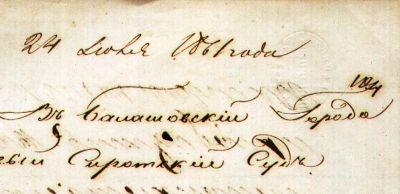 24 июля 1861 года
124
Въ Балашовскій Городо
вый Сиротскій Судъ